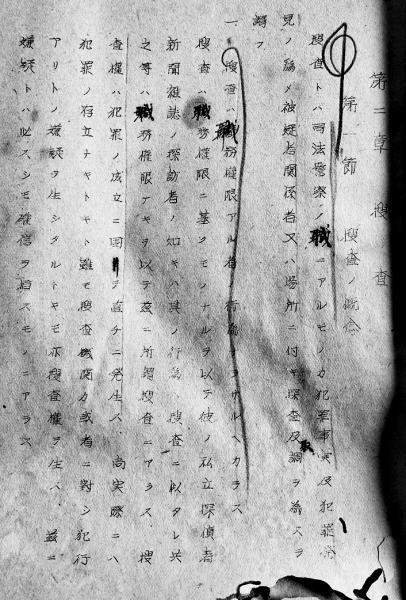 第二章 搜査
第一節 搜査ノ概念
搜査トハ司法警察ノ職ニアルモノカ犯罪事実及犯罪発
見ノ為メ被疑者関係者又ハ場所ニ付キ探査及調ヲ為スヲ
謂フ
一、搜査ハ職務権限アル者ノ行為ナラサルヘカラス
搜査ハ職務権限ニ基クモノナルヲ以テ彼ノ私立探偵者
新聞雑誌ノ探訪者ノ如キハ其ノ行為、搜査ニ以タレ共
之等ハ職務権限ナキヲ以テ茲ニ所謂搜査ニアラス、搜
査権ハ犯罪ノ成立ニ因テ直チニ発生ス、尚実際ニハ
犯罪ノ存立ナキトキト雖モ搜査機関カ或者ニ對シ犯行
アリトノ嫌疑ヲ生シタルトキモ亦搜査権ヲ生ス、茲ニ
嫌疑トハ必スシモ確信ヲ指スモノニアラス